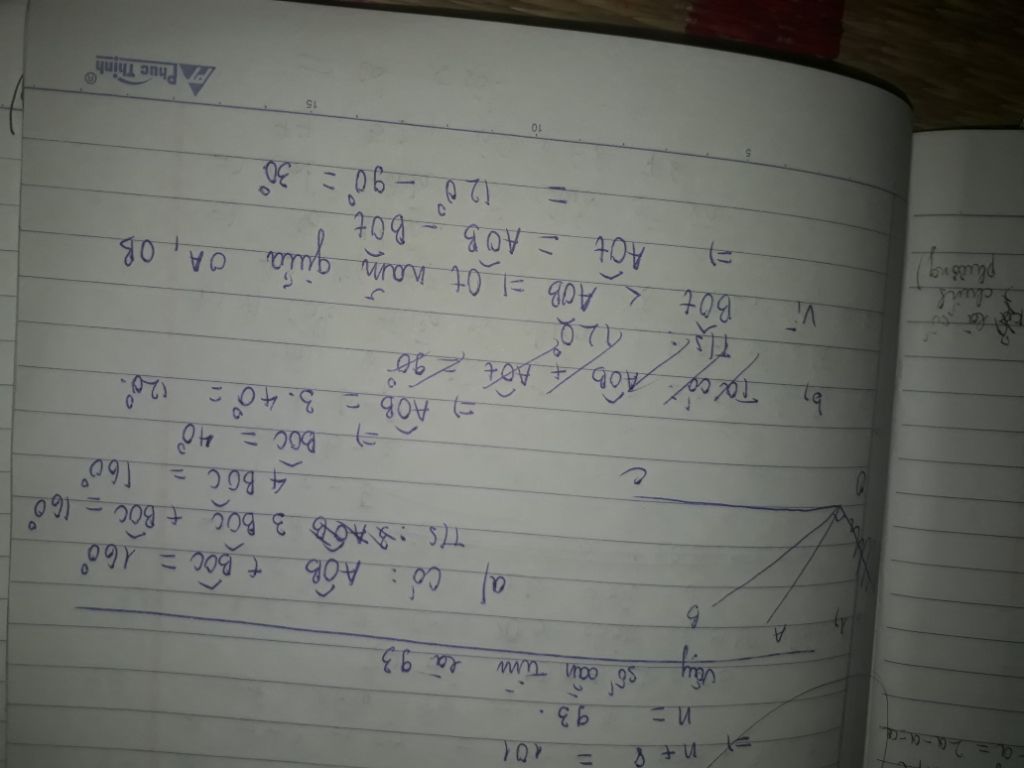 =) n + 8 = 101
n = 93.
Vậy số cần tìm là 93
A
B
O
C
a) Có: AOB + BOC = 160°
T/s: 3 BOC + BOC = 160°
4 BOC = 160°
=) BOC = 40°
=) AOB = 3.40° = 120°.
b) Ta có: AOB + AOt = 90°
T/s: 120°
Vì BOt < AOB =) Ot nằm giữa OA, OB
=) AOt = AOB - BOt
= 120° - 90° = 30°
5 10 15
Phuc Thinh ®
phương)
-a = 2a-a-a